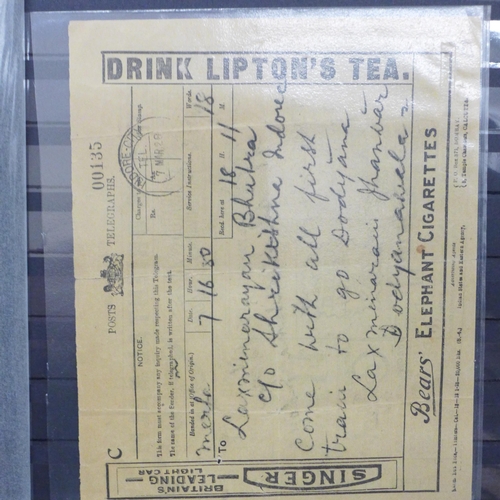 DRINK LIPTON'S TEA.
00135
POSTS TELEGRAPHS.
C
NOTICE.
This form must accompany any inquiry made respecting the Telegram.
The name of the Sender, if telegraphed, is written after the text.
Charges
Rs.
Handed in at (Office of Origin.) Date. Hour. Minute. Service Instructions. Words.
7 16 50 18
Recd. here at 18 H. 11 M.
To Laxminarayan Bhutra
C/o Shrikishna Indore
Come with all first
train to go Dodyana
Laxminarain Jhanwar
Dodyanawala
Bears' ELEPHANT CIGARETTES
BRITAIN'S
LEADING
LIGHT CAR
SINGER